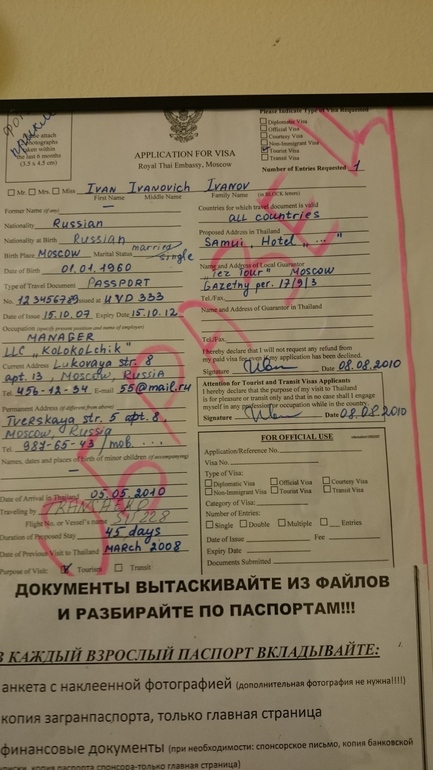 ОБРАЗЕЦ
Please Indicate Type of Visa Requested
Diplomatic Visa
Official Visa
Courtesy Visa
Non-Immigrant Visa
Tourist Visa
Transit Visa
Number of Entries Requested 1
attach
photographs
taken within
the last 6 months
(3.5 x 4.5 cm)
APPLICATION FOR VISA
Royal Thai Embassy, Moscow
Mr. Mrs. Miss IVAN IVANOVICH IVANOV
First Name Middle Name Family Name (in BLOCK letters)
Former Name (if any) —
Nationality Russian
Nationality at Birth Russian
Birth Place MOSCOW Marital Status married single
Date of Birth 01.01.1960
Type of Travel Document PASSPORT
No. 123456789 Issued at UVD 333
Date of Issue 15.10.07 Expiry Date 15.10.12
Occupation (specify present position and name of employer)
MANAGER
LLC „KOLOKOLCHIK"
Current Address Lukovaya str. 8
apt. 13, Moscow, RUSSIA
Tel. 456-12-34 E-mail 55@mail.ru
Permanent Address (if different from above)
Tverskaya str. 5 apt. 8,
Moscow, Russia
Tel. 987-65-43 / mob. ...
Names, dates and places of birth of minor children (if accompanying)
—
Date of Arrival in Thailand 05.05.2010
Traveling by
Flight No. or Vessel's name
Duration of Proposed Stay 45 days
Date of Previous Visit to Thailand MARCH 2008
Purpose of Visit: Tourism Transit
Countries for which travel document is valid
ALL countries
Proposed Address in Thailand
SAMUI, Hotel „ ... "
Name and Address of Local Guarantor
„Tez Tour" Moscow
Gazetny per. 17/9/3
Tel./Fax.
Name and Address of Guarantor in Thailand
Tel./Fax.
I hereby declare that I will not request any refund from
my paid visa fee even if my application has been declined.
Signature Date 08.08.2010
Attention for Tourist and Transit Visas Applicants
I hereby declare that the purpose of my visit to Thailand
is for pleasure or transit only and that in no case shall I engage
myself in any profession or occupation while in the country.
Signature Date 08.08.2010
FOR OFFICIAL USE
Application/Reference No.
Visa No.
Type of Visa:
Diplomatic Visa Official Visa Courtesy Visa
Non-Immigrant Visa Tourist Visa Transit Visa
Category of Visa:
Number of Entries:
Single Double Multiple Entries
Date of Issue Fee
Expiry Date
Documents Submitted
ДОКУМЕНТЫ ВЫТАСКИВАЙТЕ ИЗ ФАЙЛОВ
И РАЗБИРАЙТЕ ПО ПАСПОРТАМ!!!
В КАЖДЫЙ ВЗРОСЛЫЙ ПАСПОРТ ВКЛАДЫВАЙТЕ:
анкета с наклеенной фотографией (дополнительная фотография не нужна!!!!)
копия загранпаспорта, только главная страница
финансовые документы (при необходимости: спонсорское письмо, копия банковской
выписки, копия паспорта спонсора-только главная страница)